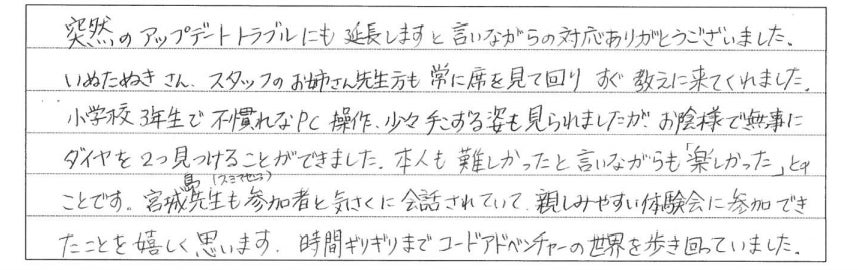 突然のアップデートトラブルにも延長しますと言いながらの対応ありがとうございました。
いぬたぬきさん、スタッフのお姉さん先生方も常に席を見て回りすぐ教えに来てくれました。
小学校3年生で不慣れなPC操作、少々手こずる姿も見られましたが、お陰様で無事に
ダイヤを2つ見つけることができました。本人も難しかったと言いながらも「楽しかった」との
ことです。宮城島(スミマセン)先生も参加者と気さくに会話されていて、親しみやすい体験会に参加でき
たことを嬉しく思います。時間ギリギリまでコードアドベンチャーの世界を歩き回っていました。